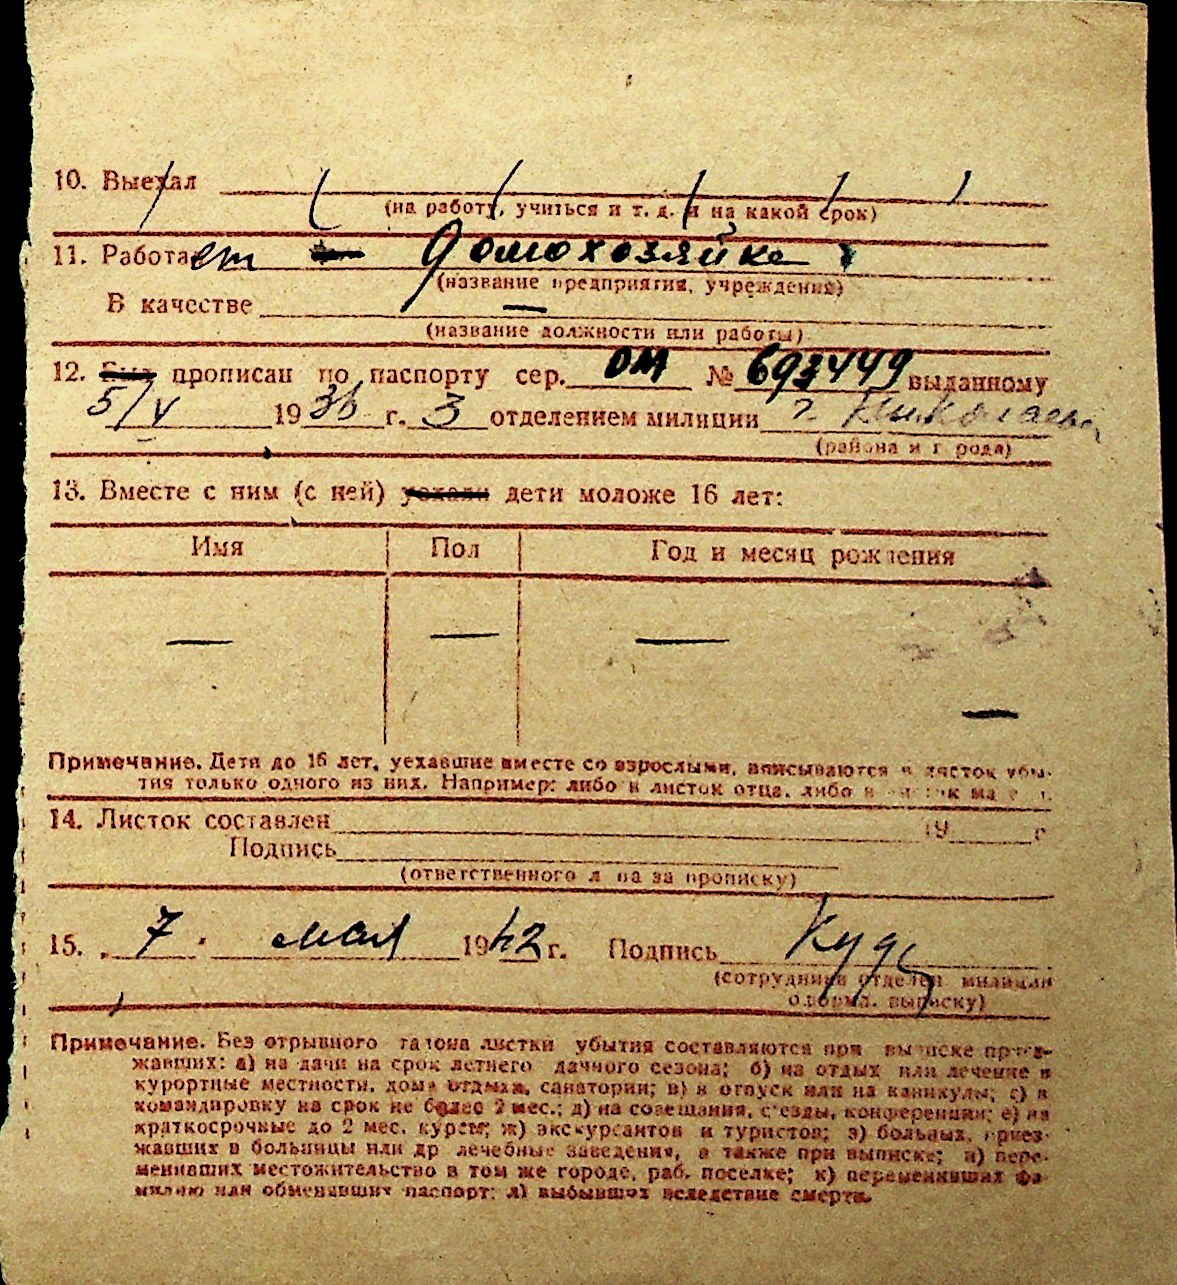 10. Выехал
(на работу, учиться и т. д. и на какой срок)
11. Работает — домохозяйка
(название предприятия, учреждения)
В качестве —
(название должности или работы)
12. Был прописан по паспорту сер. ОМ № 693449 выданному
5/V 1936 г. 3 отделением милиции г. Николаева
(района и города)
13. Вместе с ним (с ней) уехали дети моложе 16 лет:
Имя Пол Год и месяц рождения
— — —
—
Примечание. Дети до 16 лет, уехавшие вместе со взрослыми, вписываются в листок убы-
тия только одного из них. Например: либо в листок отца, либо в листок
14. Листок составлен 19 г.
Подпись
(ответственного лица за прописку)
15. „7" мая 1942 г. Подпись
(сотрудника отделен. милиции
оформл. выписку)
Примечание. Без отрывного талона листки убытия составляются при выписке приез-
жавших: а) на дачи на срок летнего дачного сезона; б) на отдых или лечение в
курортные местности, дома отдыха, санатории; в) в отпуск или на каникулы; г) в
командировку на срок не более 2 мес.; д) на совещания, съезды, конференции; е) на
краткосрочные до 2 мес. курсы; ж) экскурсантов и туристов; з) больных, приез-
жавших в больницы или др лечебные заведения, а также при выписке; и) пере-
менивших местожительство в том же городе, раб. поселке; к) переменивших фа-
милию или обменявших паспорт; л) выбывших вследствие смерти.